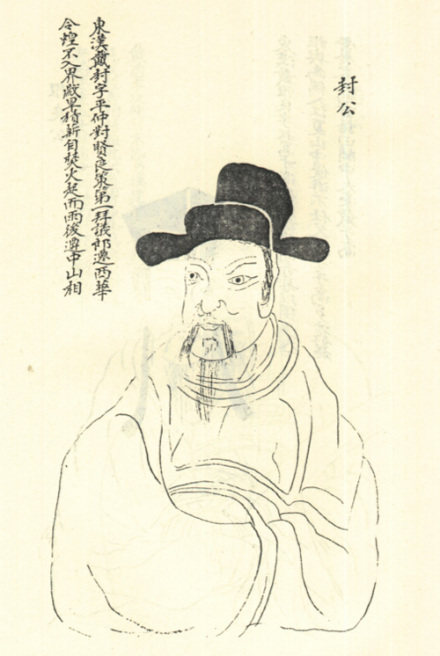 封公
東漢戴封字平仲對賢良策第一拜議郎遷西華
令蝗不入界歲旱積薪自焚火起而雨後遷中山相